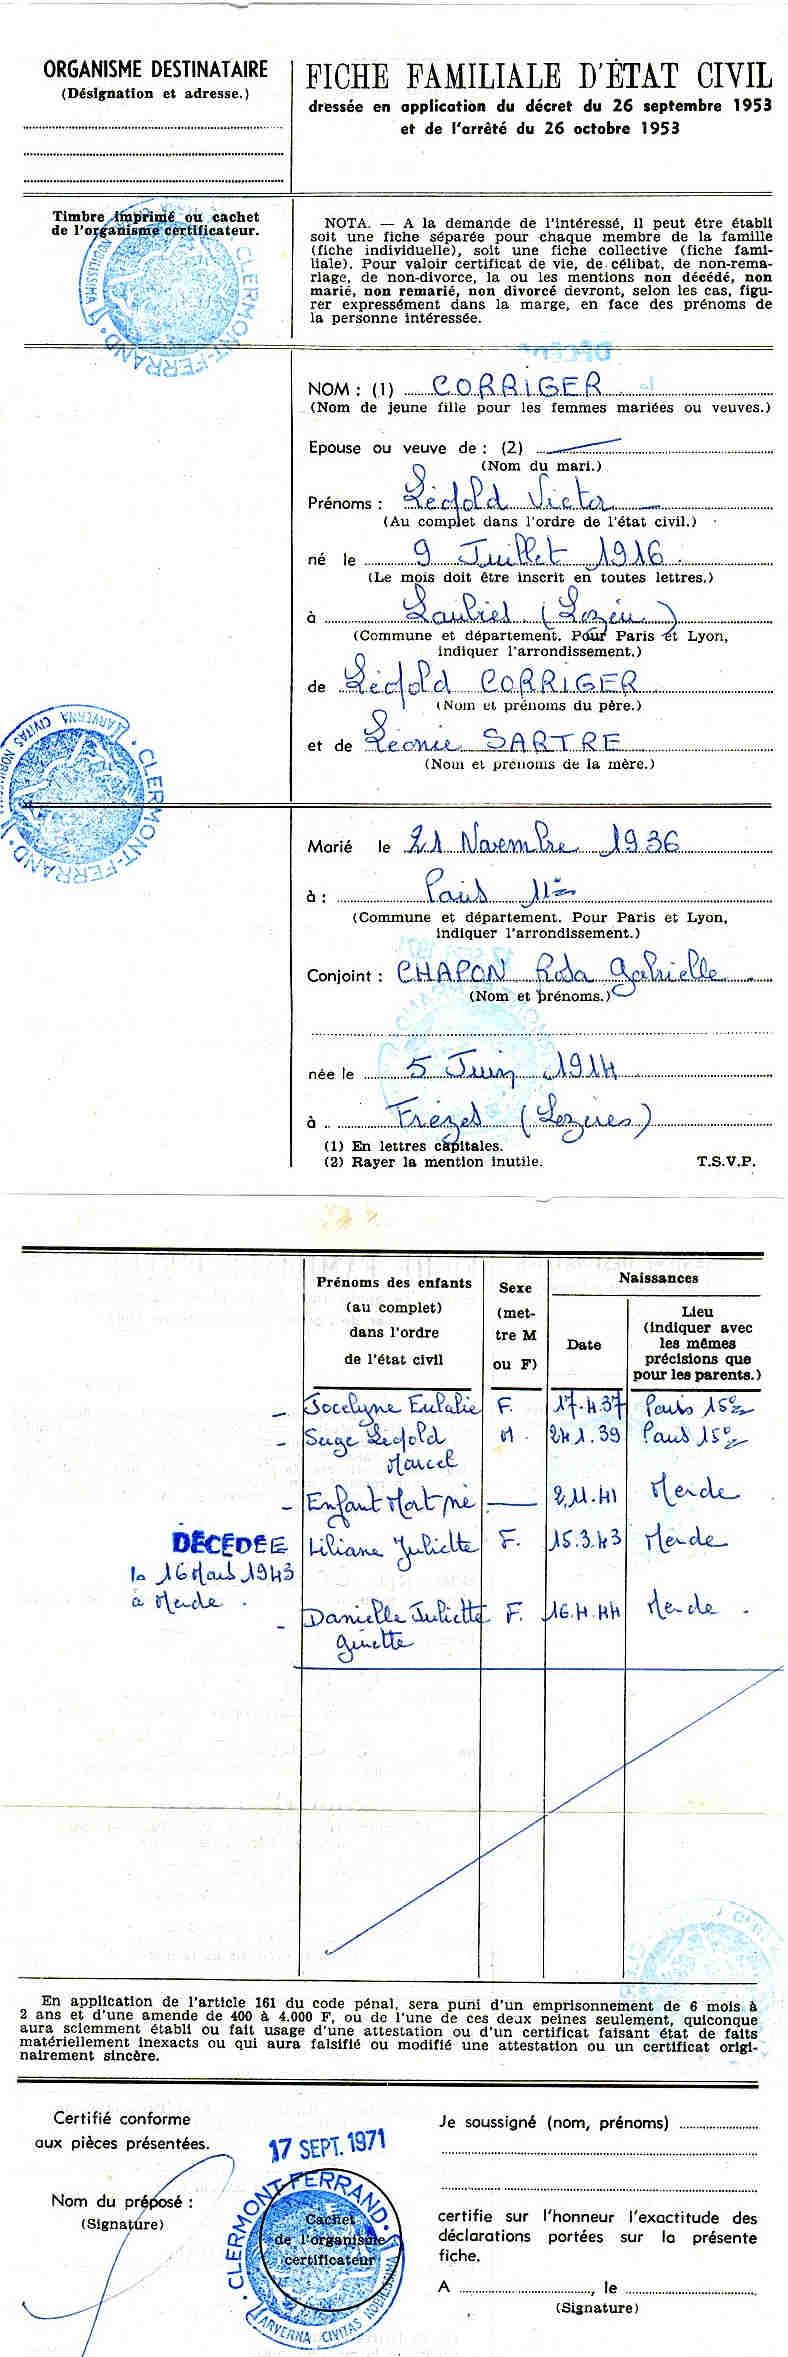 ORGANISME DESTINATAIRE
(Désignation et adresse.)
FICHE FAMILIALE D'ÉTAT CIVIL
dressée en application du décret du 26 septembre 1953
et de l'arrêté du 26 octobre 1953
Timbre imprimé ou cachet
de l'organisme certificateur.
CLERMONT-FERRAND
ARVERNA CIVITAS NOBILISSIMA
NOTA. — A la demande de l'intéressé, il peut être établi
soit une fiche séparée pour chaque membre de la famille
(fiche individuelle), soit une fiche collective (fiche fami-
liale). Pour valoir certificat de vie, de célibat, de non-rema-
riage, de non-divorce, la ou les mentions non décédé, non
marié, non remarié, non divorcé devront, selon les cas, figu-
rer expressément dans la marge, en face des prénoms de
la personne intéressée.
NOM : (1) CORRIGER
(Nom de jeune fille pour les femmes mariées ou veuves.)
Epouse ou veuve de : (2)
(Nom du mari.)
Prénoms : Léopold Victor —
(Au complet dans l'ordre de l'état civil.)
né le 9 Juillet 1916
(Le mois doit être inscrit en toutes lettres.)
à Laubies (Lozère)
(Commune et département. Pour Paris et Lyon,
indiquer l'arrondissement.)
de Léopold CORRIGER
(Nom et prénoms du père.)
et de Léonie SARTRE
(Nom et prénoms de la mère.)
CLERMONT-FERRAND
ARVERNA CIVITAS NOBILISSIMA
Marié le 21 Novembre 1936
à : Paris 11e
(Commune et département. Pour Paris et Lyon,
indiquer l'arrondissement.)
Conjoint : CHAPON Rosa Gabrielle
(Nom et prénoms.)
née le 5 Juin 1914
à (Lozères)
(1) En lettres capitales.
(2) Rayer la mention inutile.
T.S.V.P.
Prénoms des enfants
(au complet)
dans l'ordre
de l'état civil
Sexe
(met-
tre M
ou F)
Naissances
Date
Lieu
(indiquer avec
les mêmes
précisions que
pour les parents.)
– Jocelyne Eulalie F. 17.4.37 Paris 15e
– Serge Léopold M. 24.1.39 Paris 15e
Marcel
– Enfant Mort né — 2.11.41 Mende
DÉCÉDÉE Liliane Juliette F. 15.3.43 Mende
le 16 Mars 1943
à Mende.
– Danielle Juliette F. 16.4.44 Mende.
Ginette
En application de l'article 161 du code pénal, sera puni d'un emprisonnement de 6 mois à
2 ans et d'une amende de 400 à 4.000 F, ou de l'une de ces deux peines seulement, quiconque
aura sciemment établi ou fait usage d'une attestation ou d'un certificat faisant état de faits
matériellement inexacts ou qui aura falsifié ou modifié une attestation ou un certificat origi-
nairement sincère.
Certifié conforme
aux pièces présentées.
17 SEPT. 1971
Nom du préposé :
(Signature)
CLERMONT-FERRAND
ARVERNA CIVITAS NOBILISSIMA
Cachet
de l'organisme
certificateur
Je soussigné (nom, prénoms)
certifie sur l'honneur l'exactitude des
déclarations portées sur la présente
fiche.
A , le
(Signature)